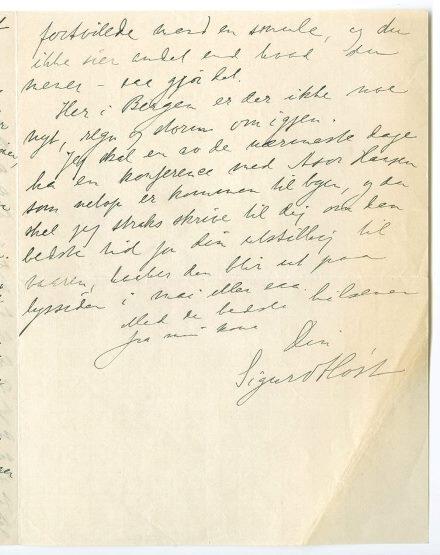 fortvilede mand en smule, og du
ikke sier andet end hvad du
mener – saa gjør det.
Her i Bergen er der ikke noe
nyt, regn og storm om igjen.
Jeg skal en av de nærmeste dage
ha en konference med Hansen
som netop er kommen til byen, og da
skal jeg straks skrive til dig om den
bedste tid for din utstilling til
vaaren, den blir ut paa
i mai eller saa.
Med de bedste hilsener
fra min kone
Din
Sigurd Høst